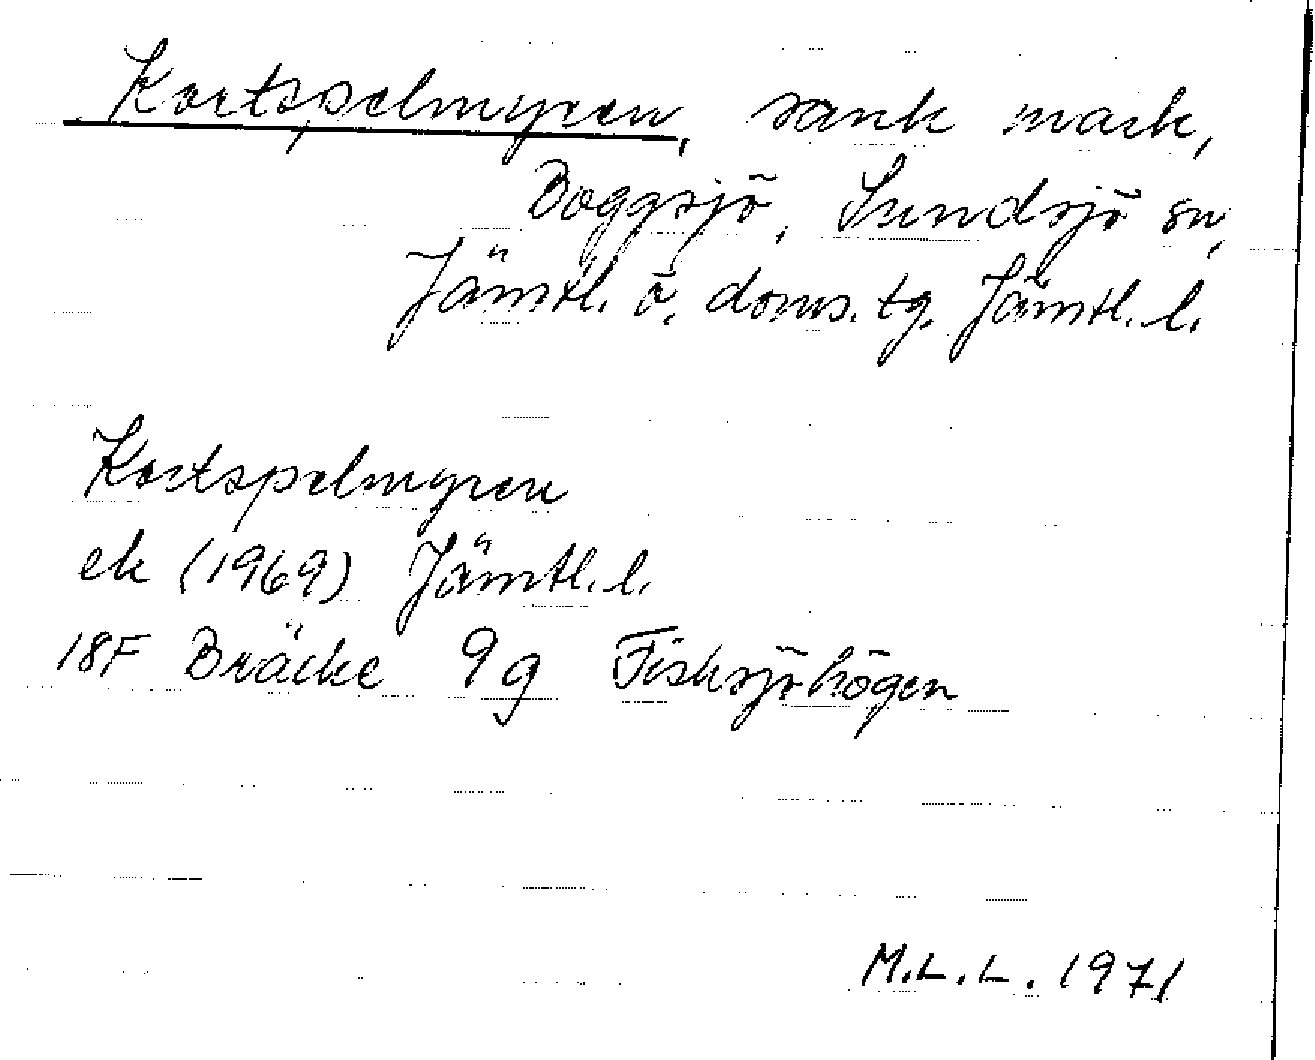 Kortspelmyren, sank mark,
Boggsjö, Sundsjö sn,
Jämtl. ö. doms. tg. Jämtl. l.
Kortspelmyren
ek (1969) Jämtl. l.
18F Bräcke 9g Fisksjöhögen
M.L.L. 1971